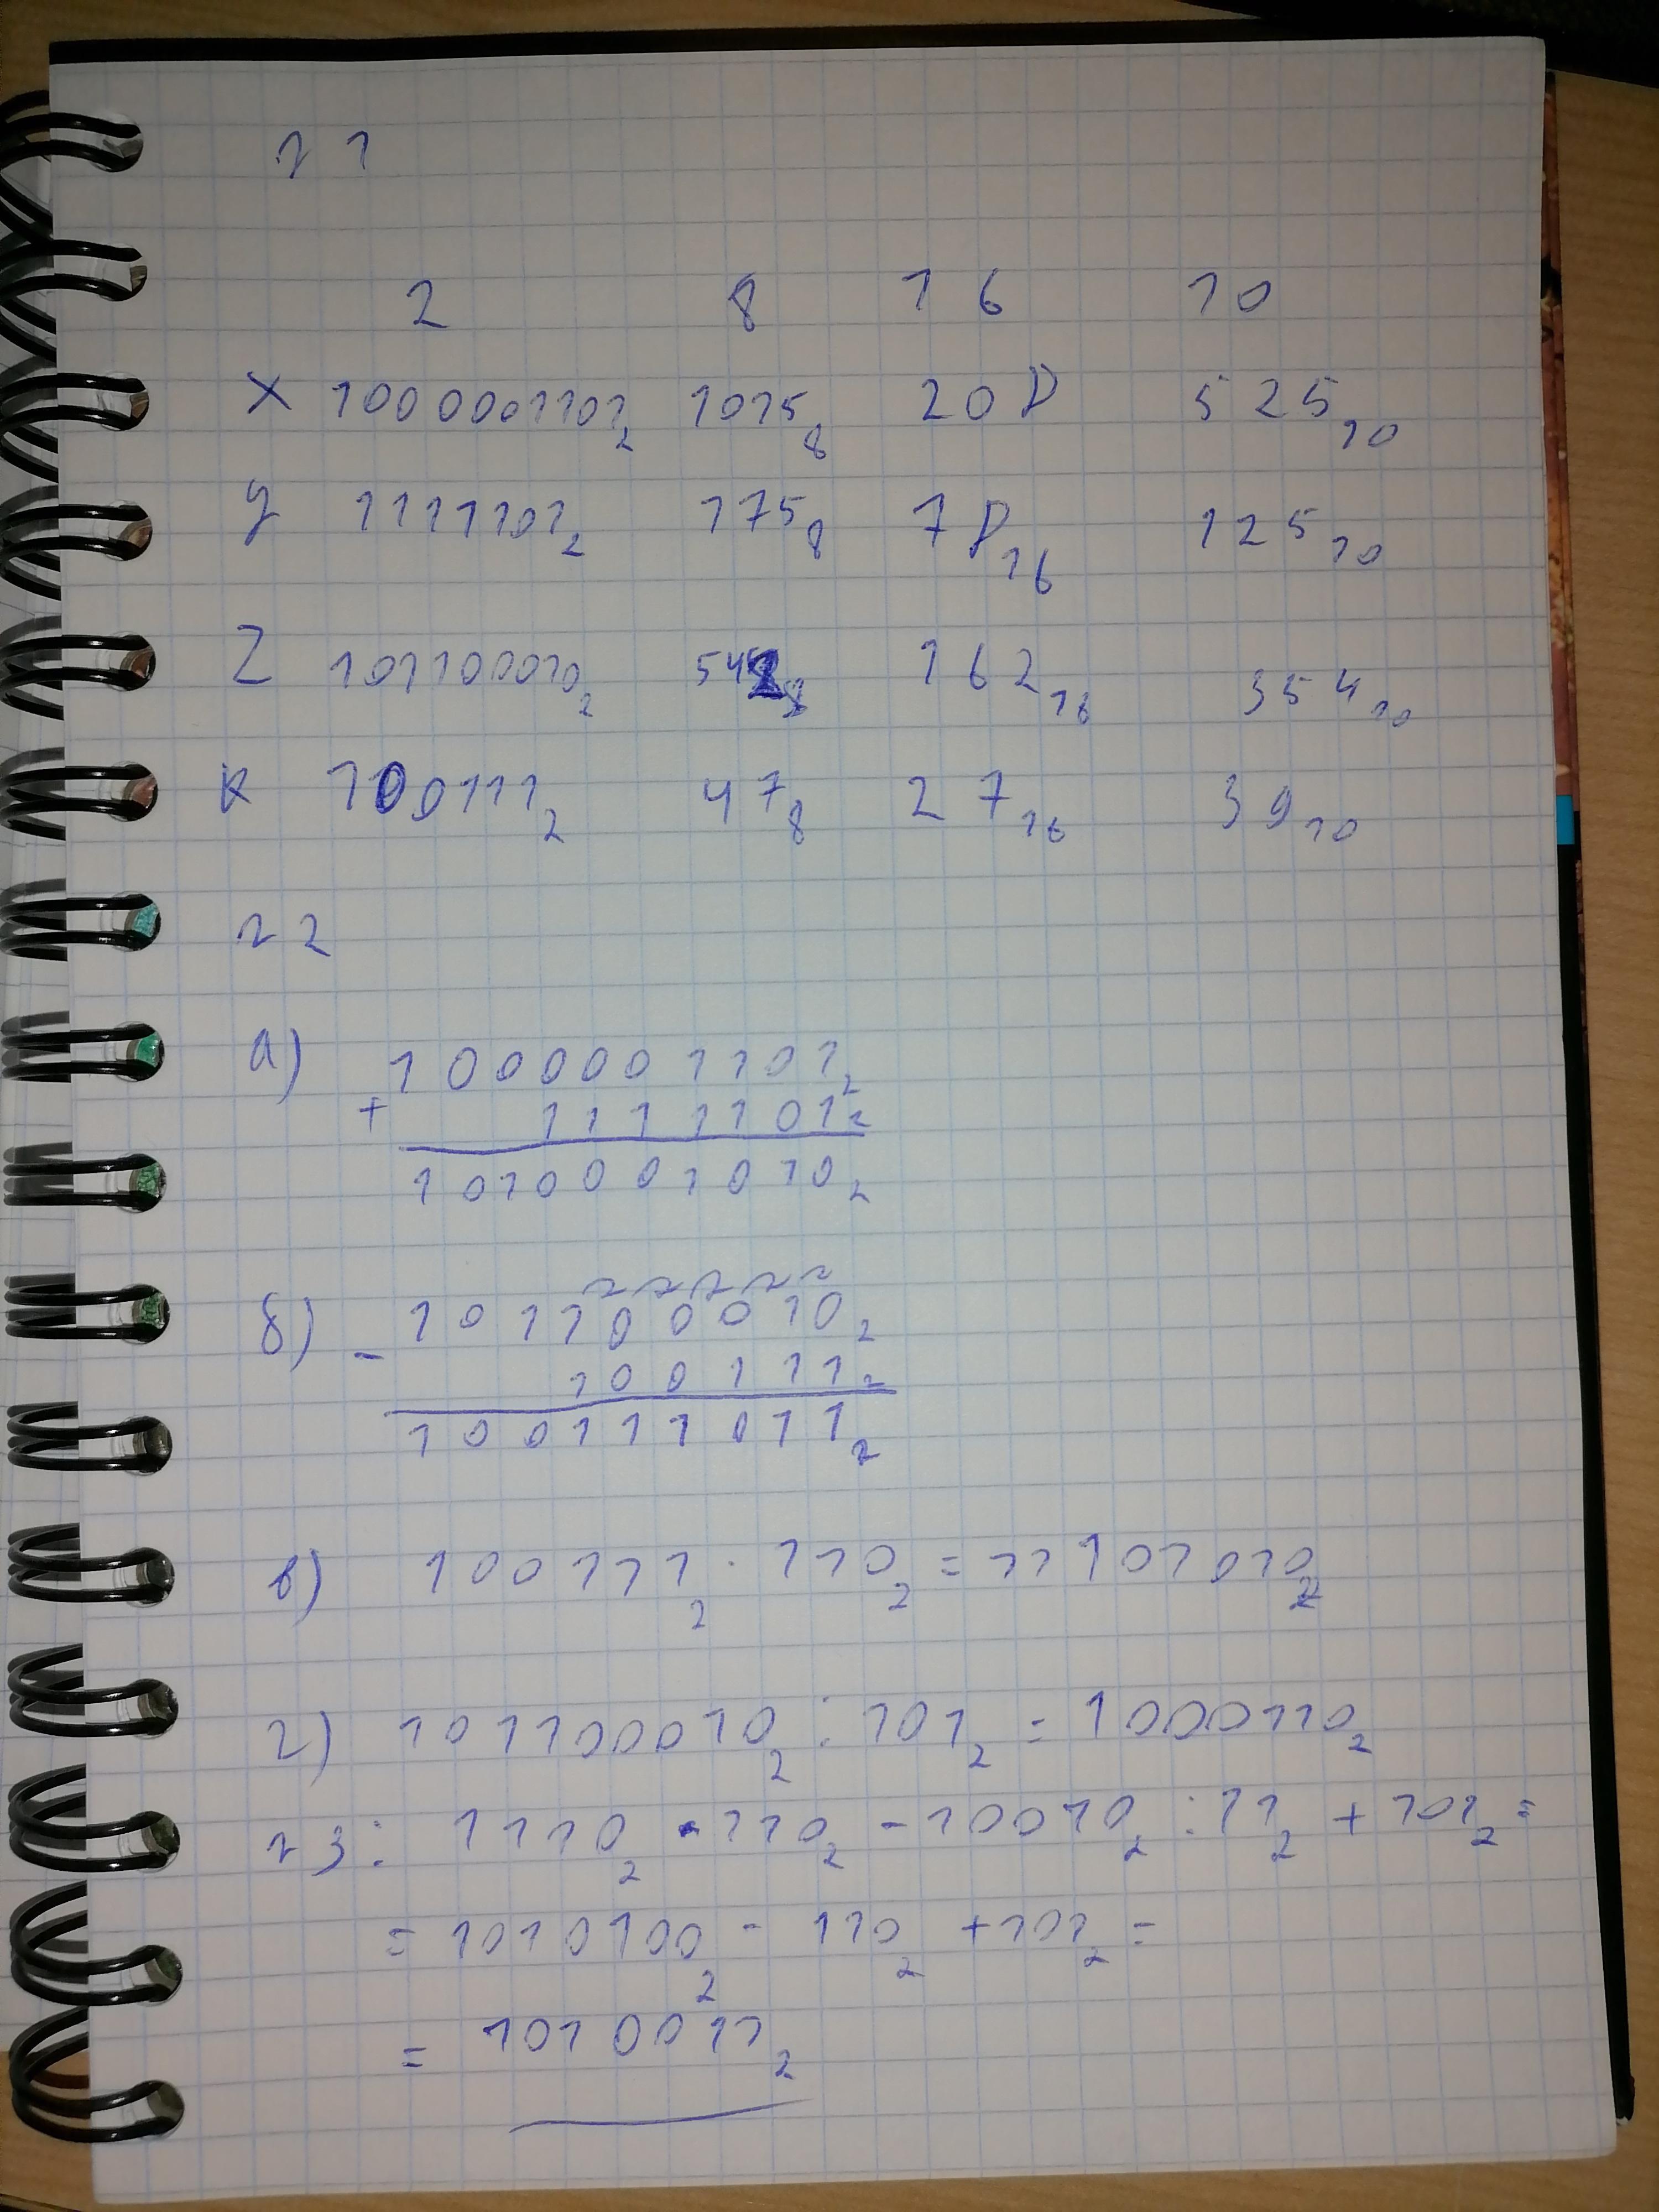 №1
2 8 16 10
X 1000001101₂ 1015₈ 20D 525₁₀
y 1111101₂ 175₈ 7D₁₆ 125₁₀
Z 101100010₂ 542₈ 162₁₆ 354₁₀
k 100111₂ 47₈ 27₁₆ 39₁₀
№2
а) 1000001101₂
+ 1111101₂
1010001010₂
б) - 101100010₂
100111₂
100111011₂
в) 100111₂ · 110₂ = 11101010₂
г) 101100010₂ : 101₂ = 1000110₂
№3: 1110₂ · 110₂ - 10010₂ : 11₂ + 101₂ =
= 1010100₂ - 110₂ + 101₂ =
= 1010011₂